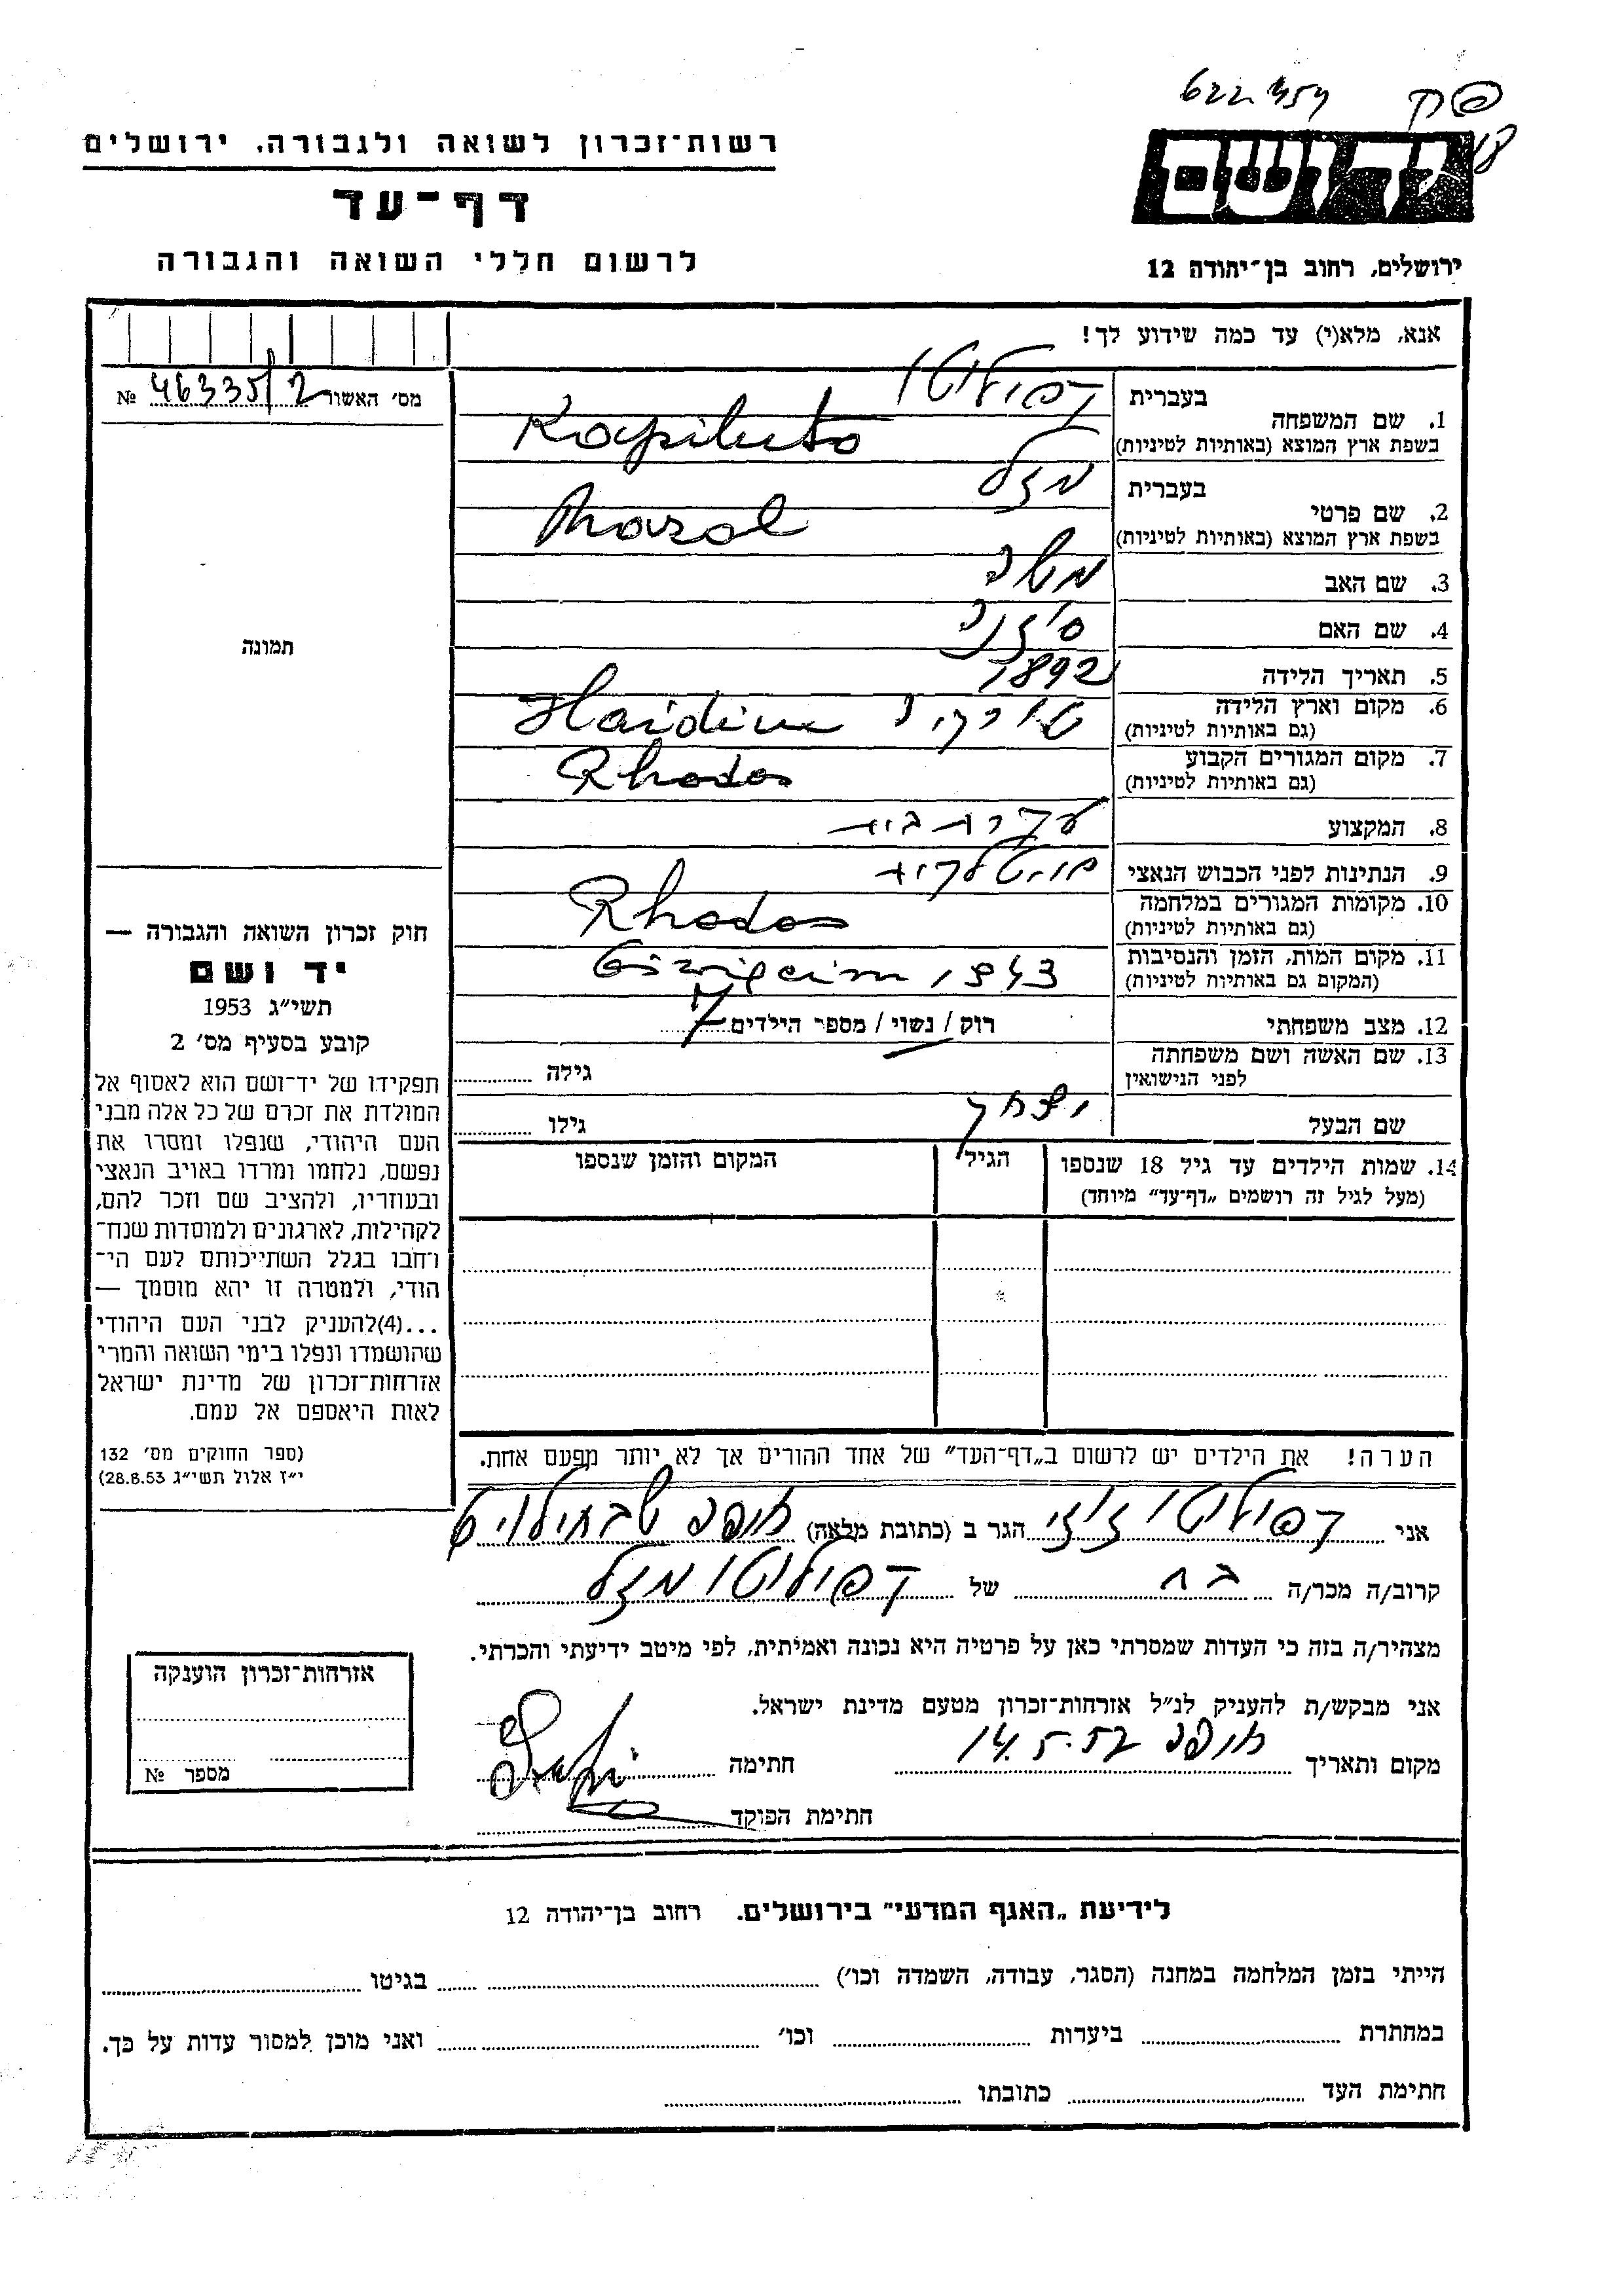 פק 622.454
יד ושם
רשות־זכרון לשואה ולגבורה, ירושלים
דף־עד
לרשום חללי השואה והגבורה
ירושלים, רחוב בן־יהודה 12
אנא, מלא(י) עד כמה שידוע לך!
מס׳ האשור 46335/2 №
תמונה
1. שם המשפחה
בעברית קפילוטו
בשפת ארץ המוצא (באותיות לטיניות) Kapiluto
2. שם פרטי
בעברית מזל
בשפת ארץ המוצא (באותיות לטיניות) Mazal
3. שם האב משה
4. שם האם
5. תאריך הלידה 1892
6. מקום וארץ הלידה טורקיה
(גם באותיות לטיניות)
7. מקום המגורים הקבוע Rhodos
(גם באותיות לטיניות)
8. המקצוע עקרת בית
9. הנתינות לפני הכבוש הנאצי איטלקית
10. מקומות המגורים במלחמה Rhodos
(גם באותיות לטיניות)
11. מקום המות, הזמן והנסיבות 1943
(המקום גם באותיות לטיניות)
12. מצב משפחתי רוק / נשוי / מספר הילדים 7
13. שם האשה ושם משפחתה
לפני הנישואין גילה
שם הבעל יצחק גילו
14. שמות הילדים עד גיל 18 שנספו הגיל המקום והזמן שנספו
(מעל לגיל זה רושמים „דף־עד״ מיוחד)
הערה! את הילדים יש לרשום ב„דף־העד״ של אחד ההורים אך לא יותר מפעם אחת.
חוק זכרון השואה והגבורה —
יד ושם
תשי״ג 1953
קובע בסעיף מס׳ 2
תפקידו של יד־ושם הוא לאסוף אל
המולדת את זכרם של כל אלה מבני
העם היהודי, שנפלו ומסרו את
נפשם, נלחמו ומרדו באויב הנאצי
ובעוזריו, ולהציב שם וזכר להם,
לקהילות, לארגונים ולמוסדות שנח־
רבו בגלל השתייכותם לעם הי־
הודי, ולמטרה זו יהא מוסמך —
...(4)להעניק לבני העם היהודי
שהושמדו ונפלו בימי השואה והמרי
אזרחות־זכרון של מדינת ישראל
לאות היאספם אל עמם.
(ספר החוקים מס׳ 132
י״ז אלול תשי״ג 28.8.53)
אני קפילוטו ז׳וזי הגר ב (כתובת מלאה) חיפה
קרוב/ה מכר/ה בת של קפילוטו מזל
מצהיר/ה בזה כי העדות שמסרתי כאן על פרטיה היא נכונה ואמיתית, לפי מיטב ידיעתי והכרתי.
אני מבקש/ת להעניק לנ״ל אזרחות־זכרון מטעם מדינת ישראל.
מקום ותאריך חיפה 14.5.57 חתימה
חתימת הפוקד
אזרחות־זכרון הוענקה
מספר №
לידיעת „האגף המדעי״ בירושלים. רחוב בן־יהודה 12
הייתי בזמן המלחמה במחנה (הסגר, עבודה, השמדה וכו׳) בגיטו
במחתרת ביערות וכו׳ ואני מוכן למסור עדות על כך.
חתימת העד כתובתו